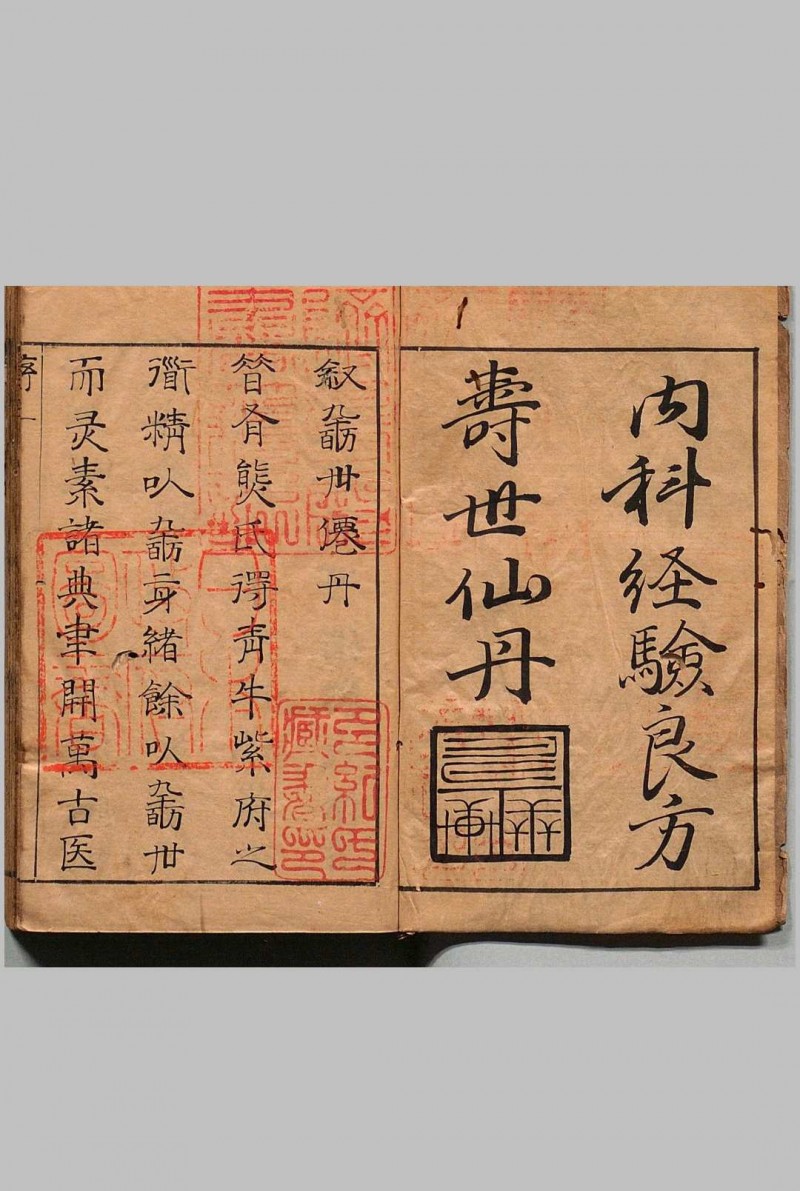 内科经驗良方
壽世仙丹
叙壽世僊丹
昝有熊氏得青牛紫府之
衟精以壽身緒餘以壽世
而灵素諸典聿開萬古医
序一